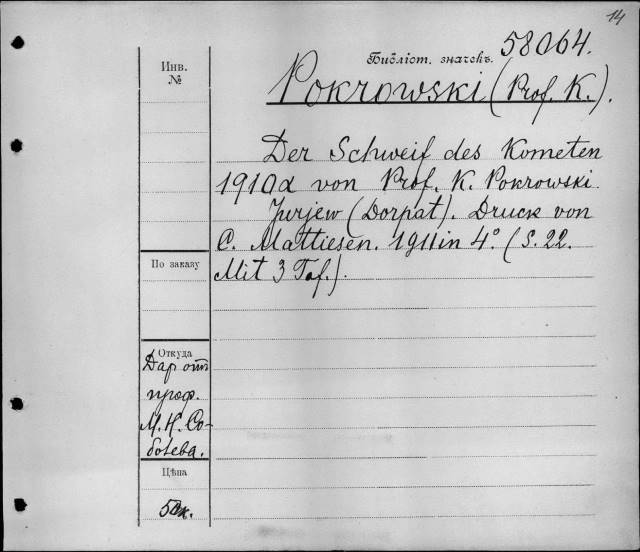 14
Библіот. значекъ. 58064.
Инв.
№
Pokrowski (Prof. K.).
Der Schweif des Kometen
1910a von Prof. K. Pokrowski.
Jurjew (Dorpat). Druck von
C. Mattiesen. 1911 in 4°. (S. 22.
Mit 3 Taf.).
По заказу
Откуда
Дар от
проф.
М. Н. Со-
болева.
Цѣна
50к.